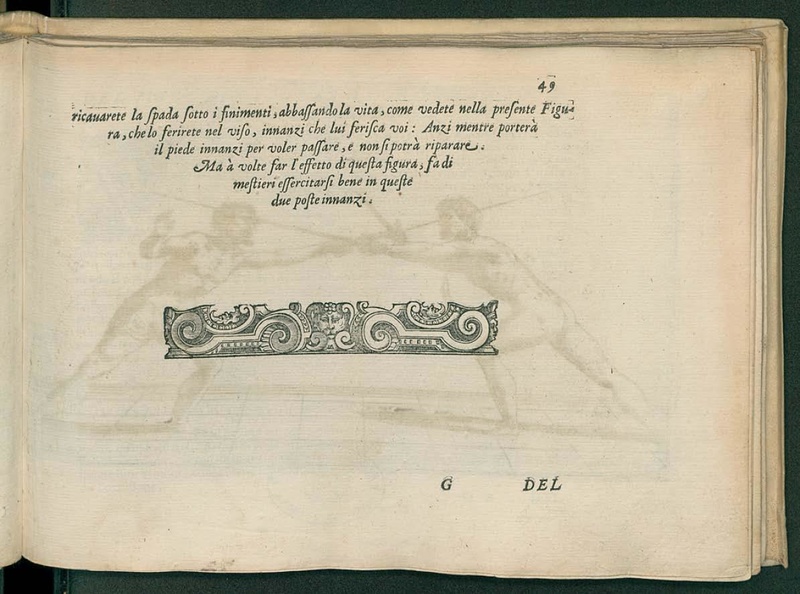 49
ricauarete la ſpada ſotto i finimenti, abbaſſando la vita, come vedete nella preſente Figu-
ra, che lo ferirete nel viſo, innanzi che lui feriſca voi: Anzi mentre porterà
il piede innanzi per voler paſſare, e non ſi potrà riparare.
Ma à volte far l'effetto di queſta figura, fa di
meſtieri eſſercitarſi bene in queſte
due poſte innanzi.
G DEL